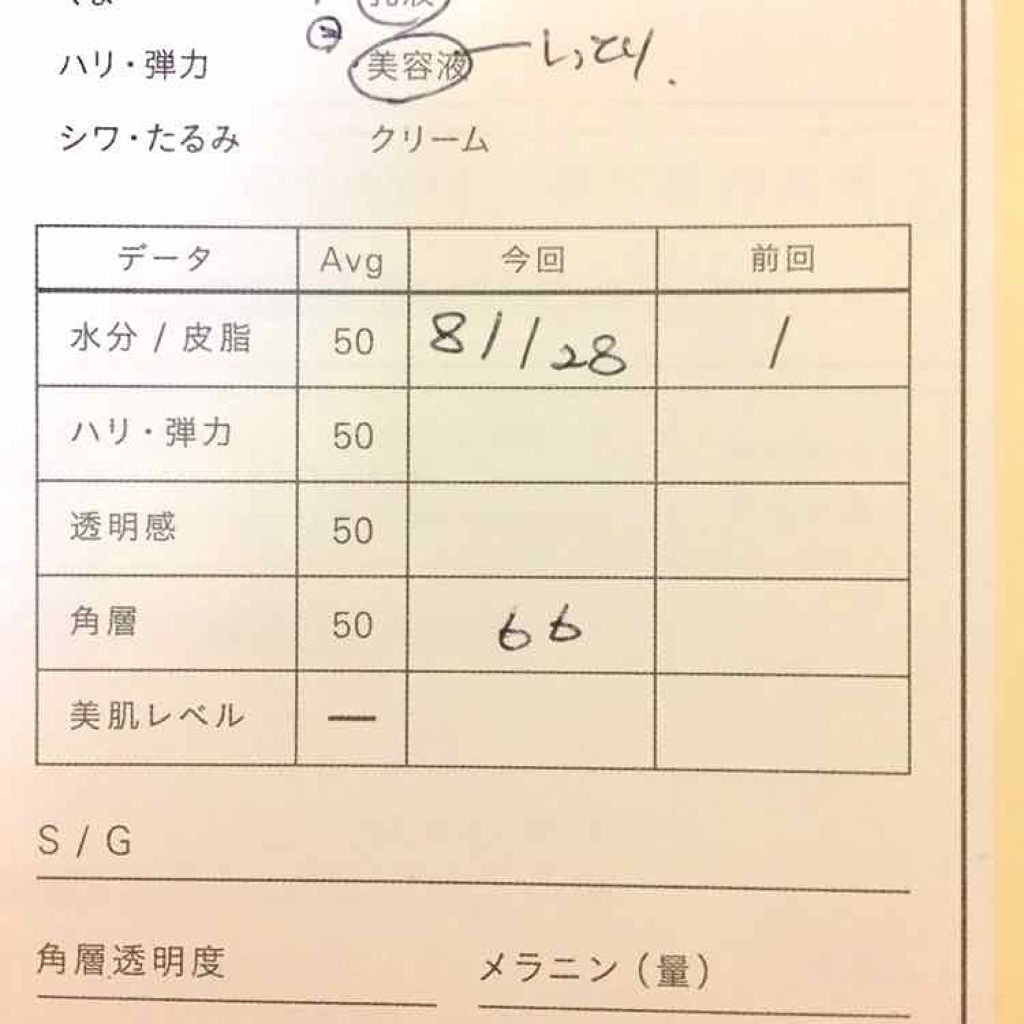 乳液
ハリ・弾力 美容液 しっとり.
シワ・たるみ クリーム
データ Avg 今回 前回
水分 / 皮脂 50 81 / 28 /
ハリ・弾力 50
透明感 50
角層 50 66
美肌レベル ー
S / G
角層透明度 メラニン (量)